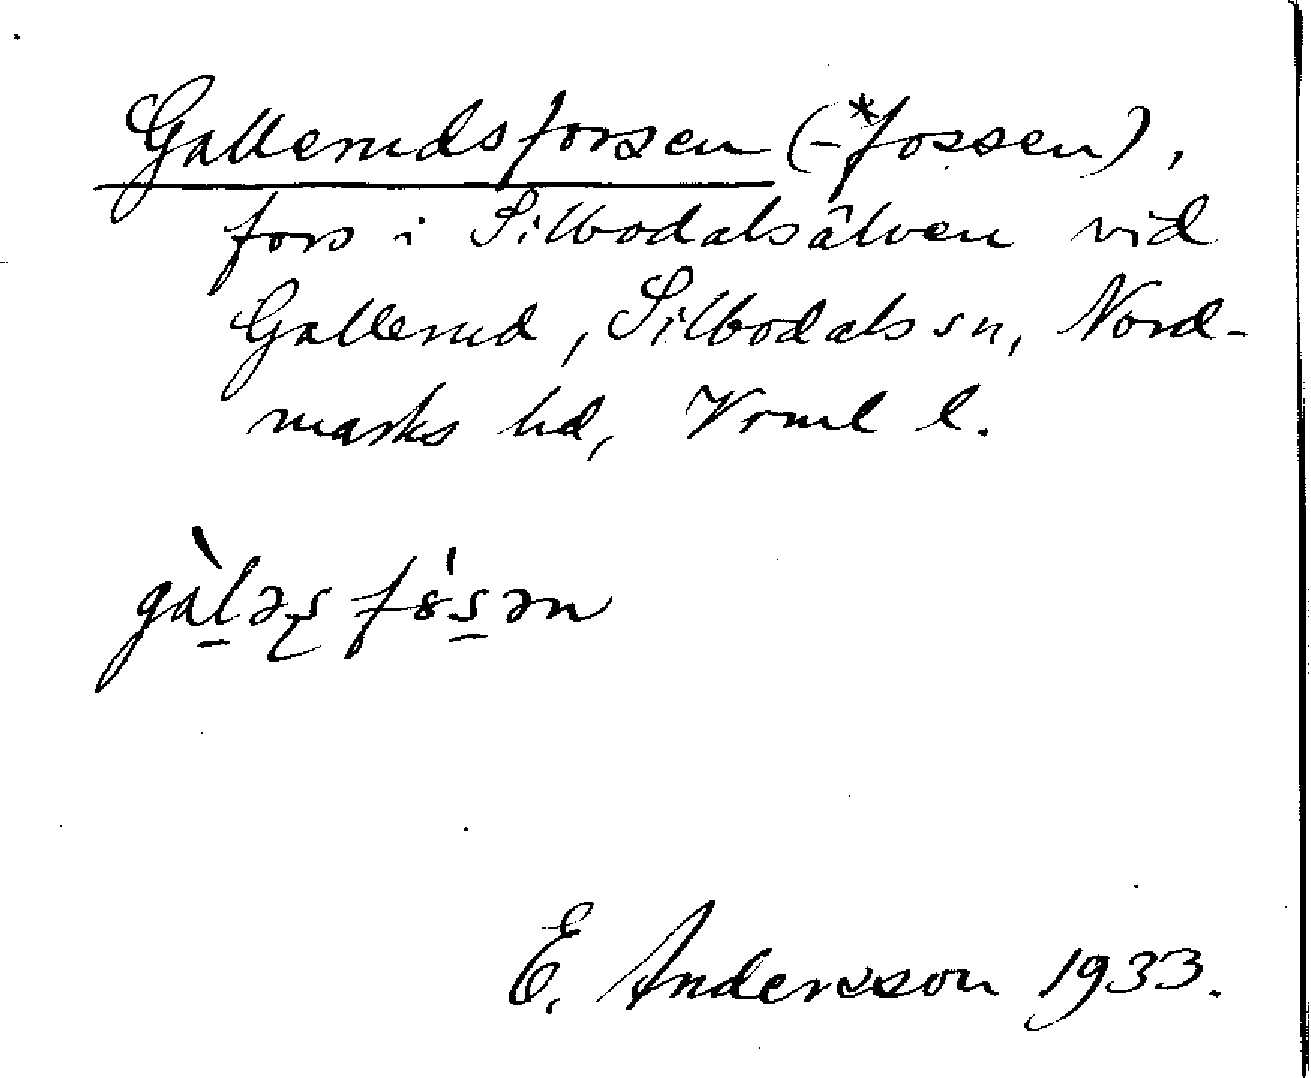 Gallerudsforsen (-*fossen),
fors i Silbodalsälven vid
Gallerud, Silbodals sn, Nord-
marks hd, Vrml l.
gàl̠əʂ fɵ́s̠ən
E. Andersson 1933.